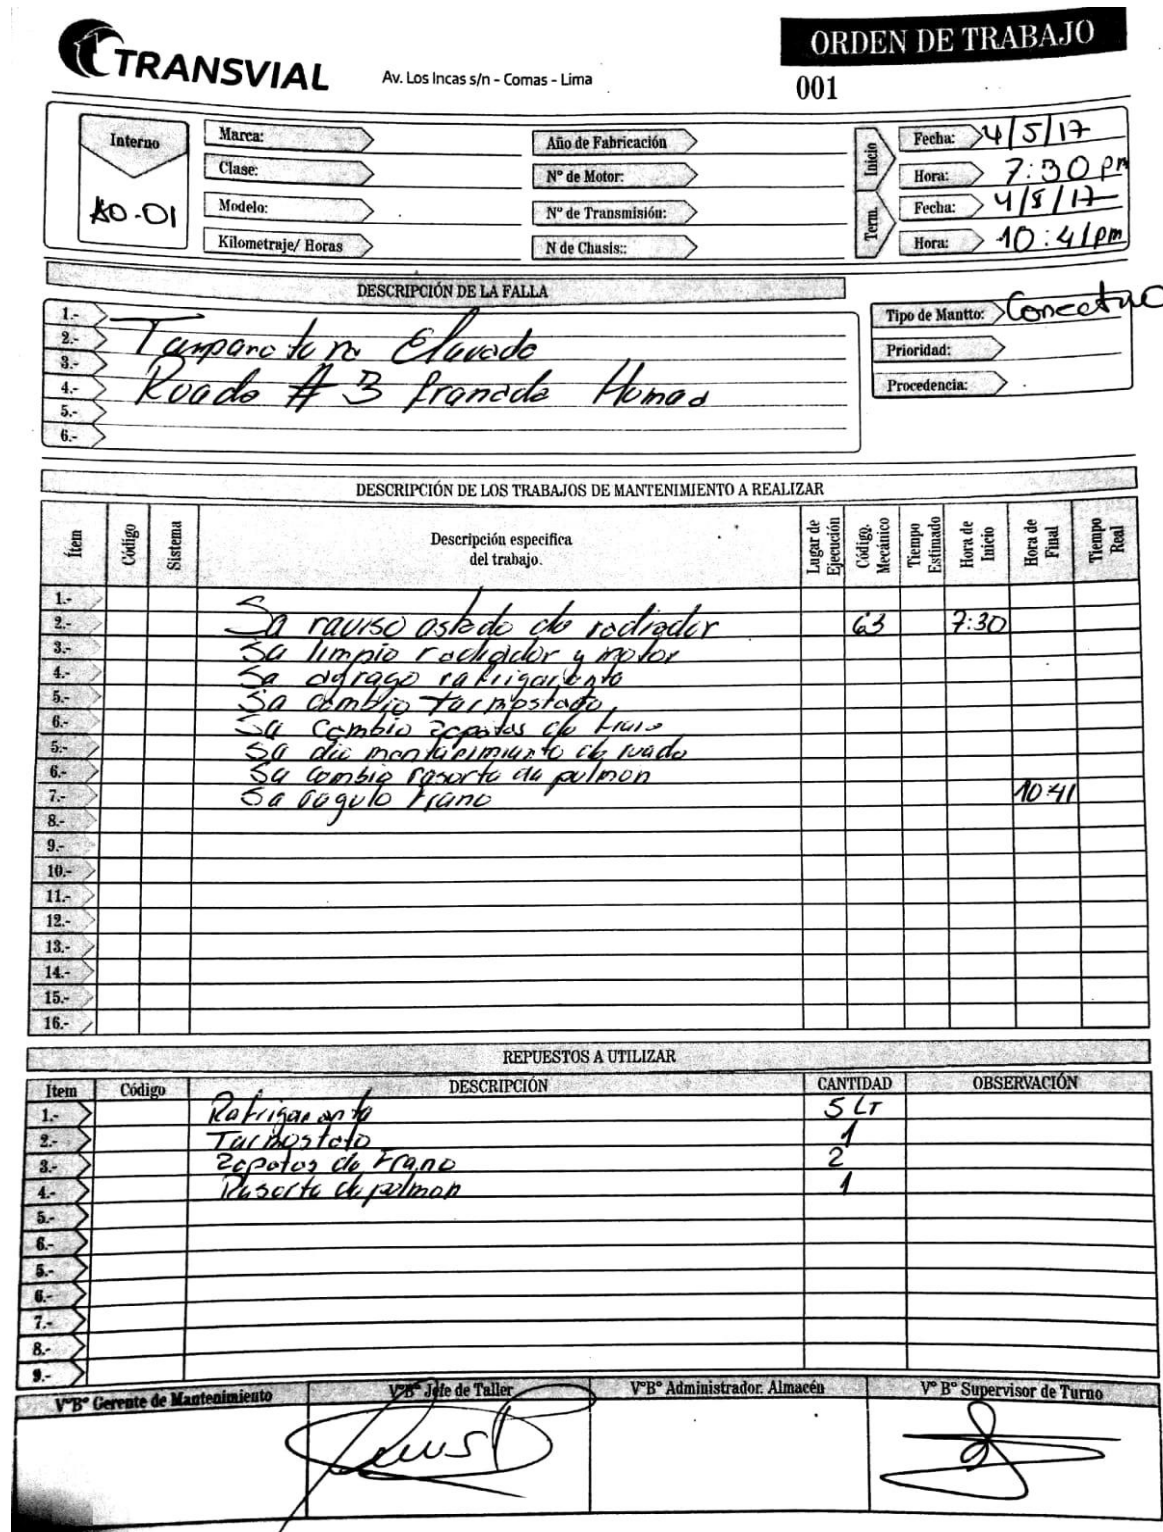 TRANSVIAL
Av. Los Incas s/n - Comas - Lima
ORDEN DE TRABAJO
001
Interno
AO-01
Marca:
Clase:
Modelo:
Kilometraje/ Horas
Año de Fabricación
N° de Motor:
N° de Transmisión:
N de Chasis::
Inicio
Fecha: 4/5/17
Hora: 7:30 pm
Term.
Fecha: 4/5/17
Hora: 10:41pm
DESCRIPCIÓN DE LA FALLA
1.-
2.- Tamparatura Elavada
3.-
4.- Ruada # 3 franada Humad
5.-
6.-
Tipo de Mantto:
Prioridad:
Procedencia:
DESCRIPCIÓN DE LOS TRABAJOS DE MANTENIMIENTO A REALIZAR
Ítem Código Sistema Descripción especifica del trabajo. Lugar de Ejecución Código. Mecánico Tiempo Estimado Hora de Inicio Hora de Final Tiempo Real
1.-
2.- Sa raviso astado da radiador 63 7:30
3.- Sa limpio radiador y motor
4.- Sa agrago rafriganta
5.- Sa cambio tarmostato
6.- Sa cambio zapatas da frano
5.- Sa dio mantanimianto da ruada
6.- Sa cambia rasorta da pulmon
7.- Sa ragulo frano 10:41
8.-
9.-
10.-
11.-
12.-
13.-
14.-
15.-
16.-
REPUESTOS A UTILIZAR
Item Código DESCRIPCIÓN CANTIDAD OBSERVACIÓN
1.- Rafriganta 5 LT
2.- Tarmostato 1
3.- Zapatas da Frano 2
4.- Rasorta da pulmon 1
5.-
6.-
5.-
6.-
7.-
8.-
9.-
V°B° Gerente de Mantenimiento V°B° Jefe de Taller V°B° Administrador. Almacén V° B° Supervisor de Turno